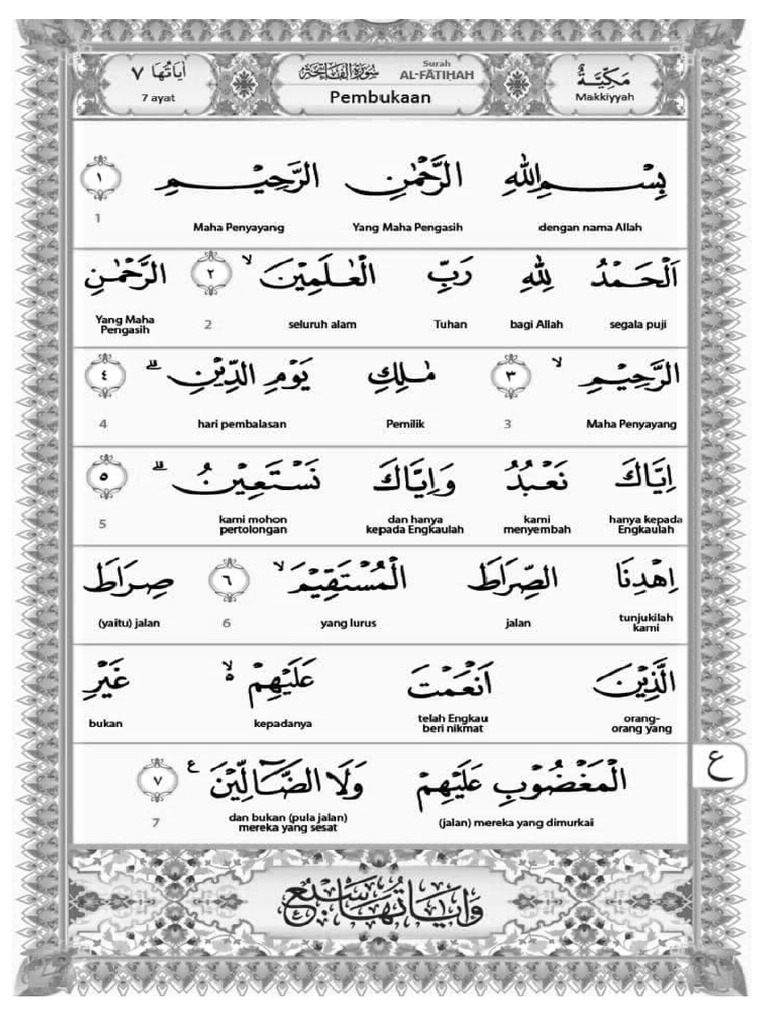 مَكِّيَّةٌ سُوْرَةُ الْفَاتِحَةِ Surah AL-FĀTIḤAH اٰيَاتُهَا ٧
Makkiyyah Pembukaan 7 ayat
بِسْمِ اللّٰهِ الرَّحْمٰنِ الرَّحِيْمِ ١
dengan nama Allah Yang Maha Pengasih Maha Penyayang 1
اَلْحَمْدُ لِلّٰهِ رَبِّ الْعٰلَمِيْنَۙ ٢ الرَّحْمٰنِ
segala puji bagi Allah Tuhan seluruh alam 2 Yang Maha Pengasih
الرَّحِيْمِۙ ٣ مٰلِكِ يَوْمِ الدِّيْنِۗ ٤
Maha Penyayang 3 Pemilik hari pembalasan 4
اِيَّاكَ نَعْبُدُ وَاِيَّاكَ نَسْتَعِيْنُۗ ٥
hanya kepada Engkaulah kami menyembah dan hanya kepada Engkaulah kami mohon pertolongan 5
اِهْدِنَا الصِّرَاطَ الْمُسْتَقِيْمَۙ ٦ صِرَاطَ
tunjukilah kami jalan yang lurus 6 (yaitu) jalan
الَّذِيْنَ اَنْعَمْتَ عَلَيْهِمْ ەۙ غَيْرِ
orang-orang yang telah Engkau beri nikmat kepadanya bukan
الْمَغْضُوْبِ عَلَيْهِمْ وَلَا الضَّاۤلِّيْنَ ع ٧
(jalan) mereka yang dimurkai dan bukan (pula jalan) mereka yang sesat 7
ع
وَاٰيَاتُهَا سَبْعٌ